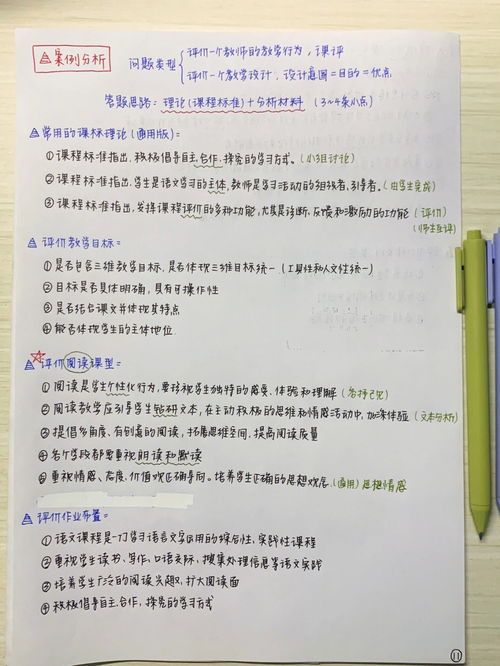 案例分析
问题类型
评价一个教师的教学行为，课评
评价一个教学设计，设计意图=目的=优点
答题思路：理论(课程标准)+分析材料 (3~4条小点)
常用的课标理论(通用版)：
①课程标准指出，积极倡导自主,合作，探究的学习方式。(小组讨论)
②课程标准指出，学生是语文学习的主体，教师是学习活动的组织者、引导者。(由学生完成)
③课程标准指出，发挥课程评价的多种功能，尤其是诊断,反馈和激励的功能 (评价)
(师生互评)
评价教学目标：
①是否包含三维教学目标，是否体现三维目标统一(工具性和人文性统一)
②目标是否具体明确，具有可操作性
③是否结合课文并体现其特点
④能否体现学生的主体地位
评价阅读课型：
①阅读是学生个性化行为，要珍视学生独特的感受、体验和理解
②阅读教学应引导学生钻研文本，在主动积极的思维和情感活动中，加深体验 (文本分析)
③提倡多角度、有创意的阅读，拓展思维空间，提高阅读质量
④各个学段都要重视朗读和默读
⑤重视情感、态度、价值观正确导向。培养学生正确的思想观念 (通用) 思想情感
评价作业布置：
①语文课程是一门学习语言文字运用的综合性，实践性课程
②重视学生读书、写作，口语交际，搜集处理信息等语文实践
③培养学生广泛的阅读兴趣，扩大阅读面
④积极倡导自主,合作，探究的学习方式
11